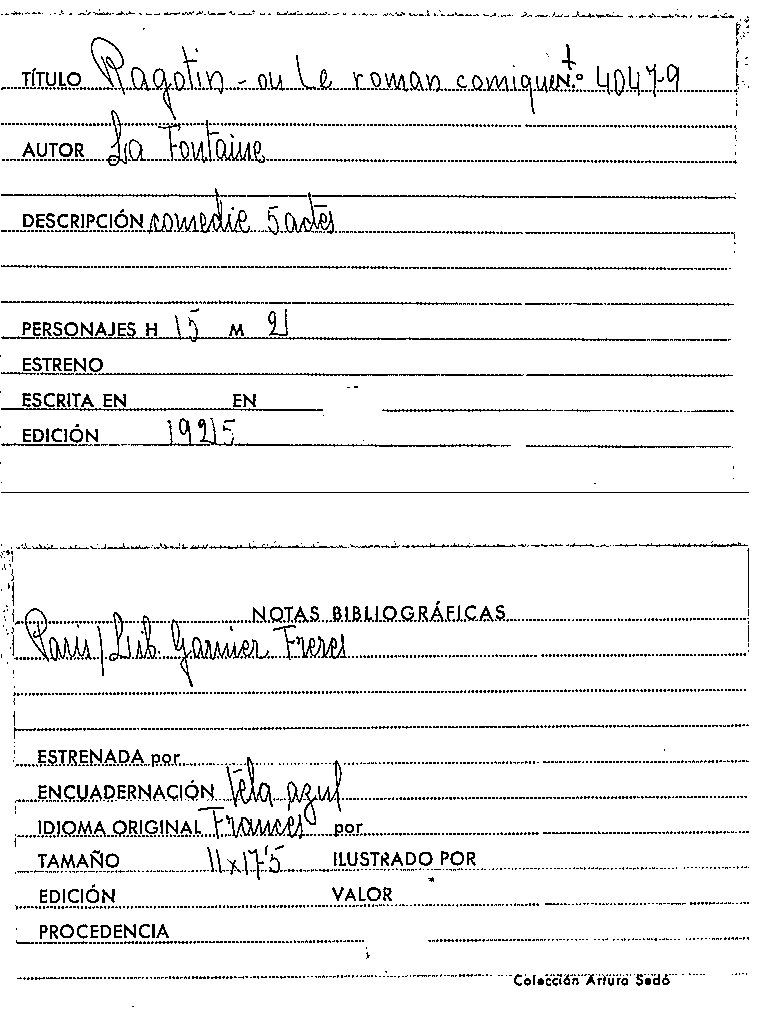 TÍTULO Ragotin - ou Le roman comique N.º 40479
AUTOR La Fontaine
DESCRIPCIÓN comedie 5 actes
PERSONAJES H 15 M 2
ESTRENO
ESCRITA EN EN
EDICIÓN 1925
NOTAS BIBLIOGRÁFICAS
Paris / Lib. Garnier Freres
ESTRENADA por
ENCUADERNACIÓN Tela azul
IDIOMA ORIGINAL Francés por
TAMAÑO 11x17'5 ILUSTRADO POR
EDICIÓN VALOR
PROCEDENCIA
Colección Arturo Sedó